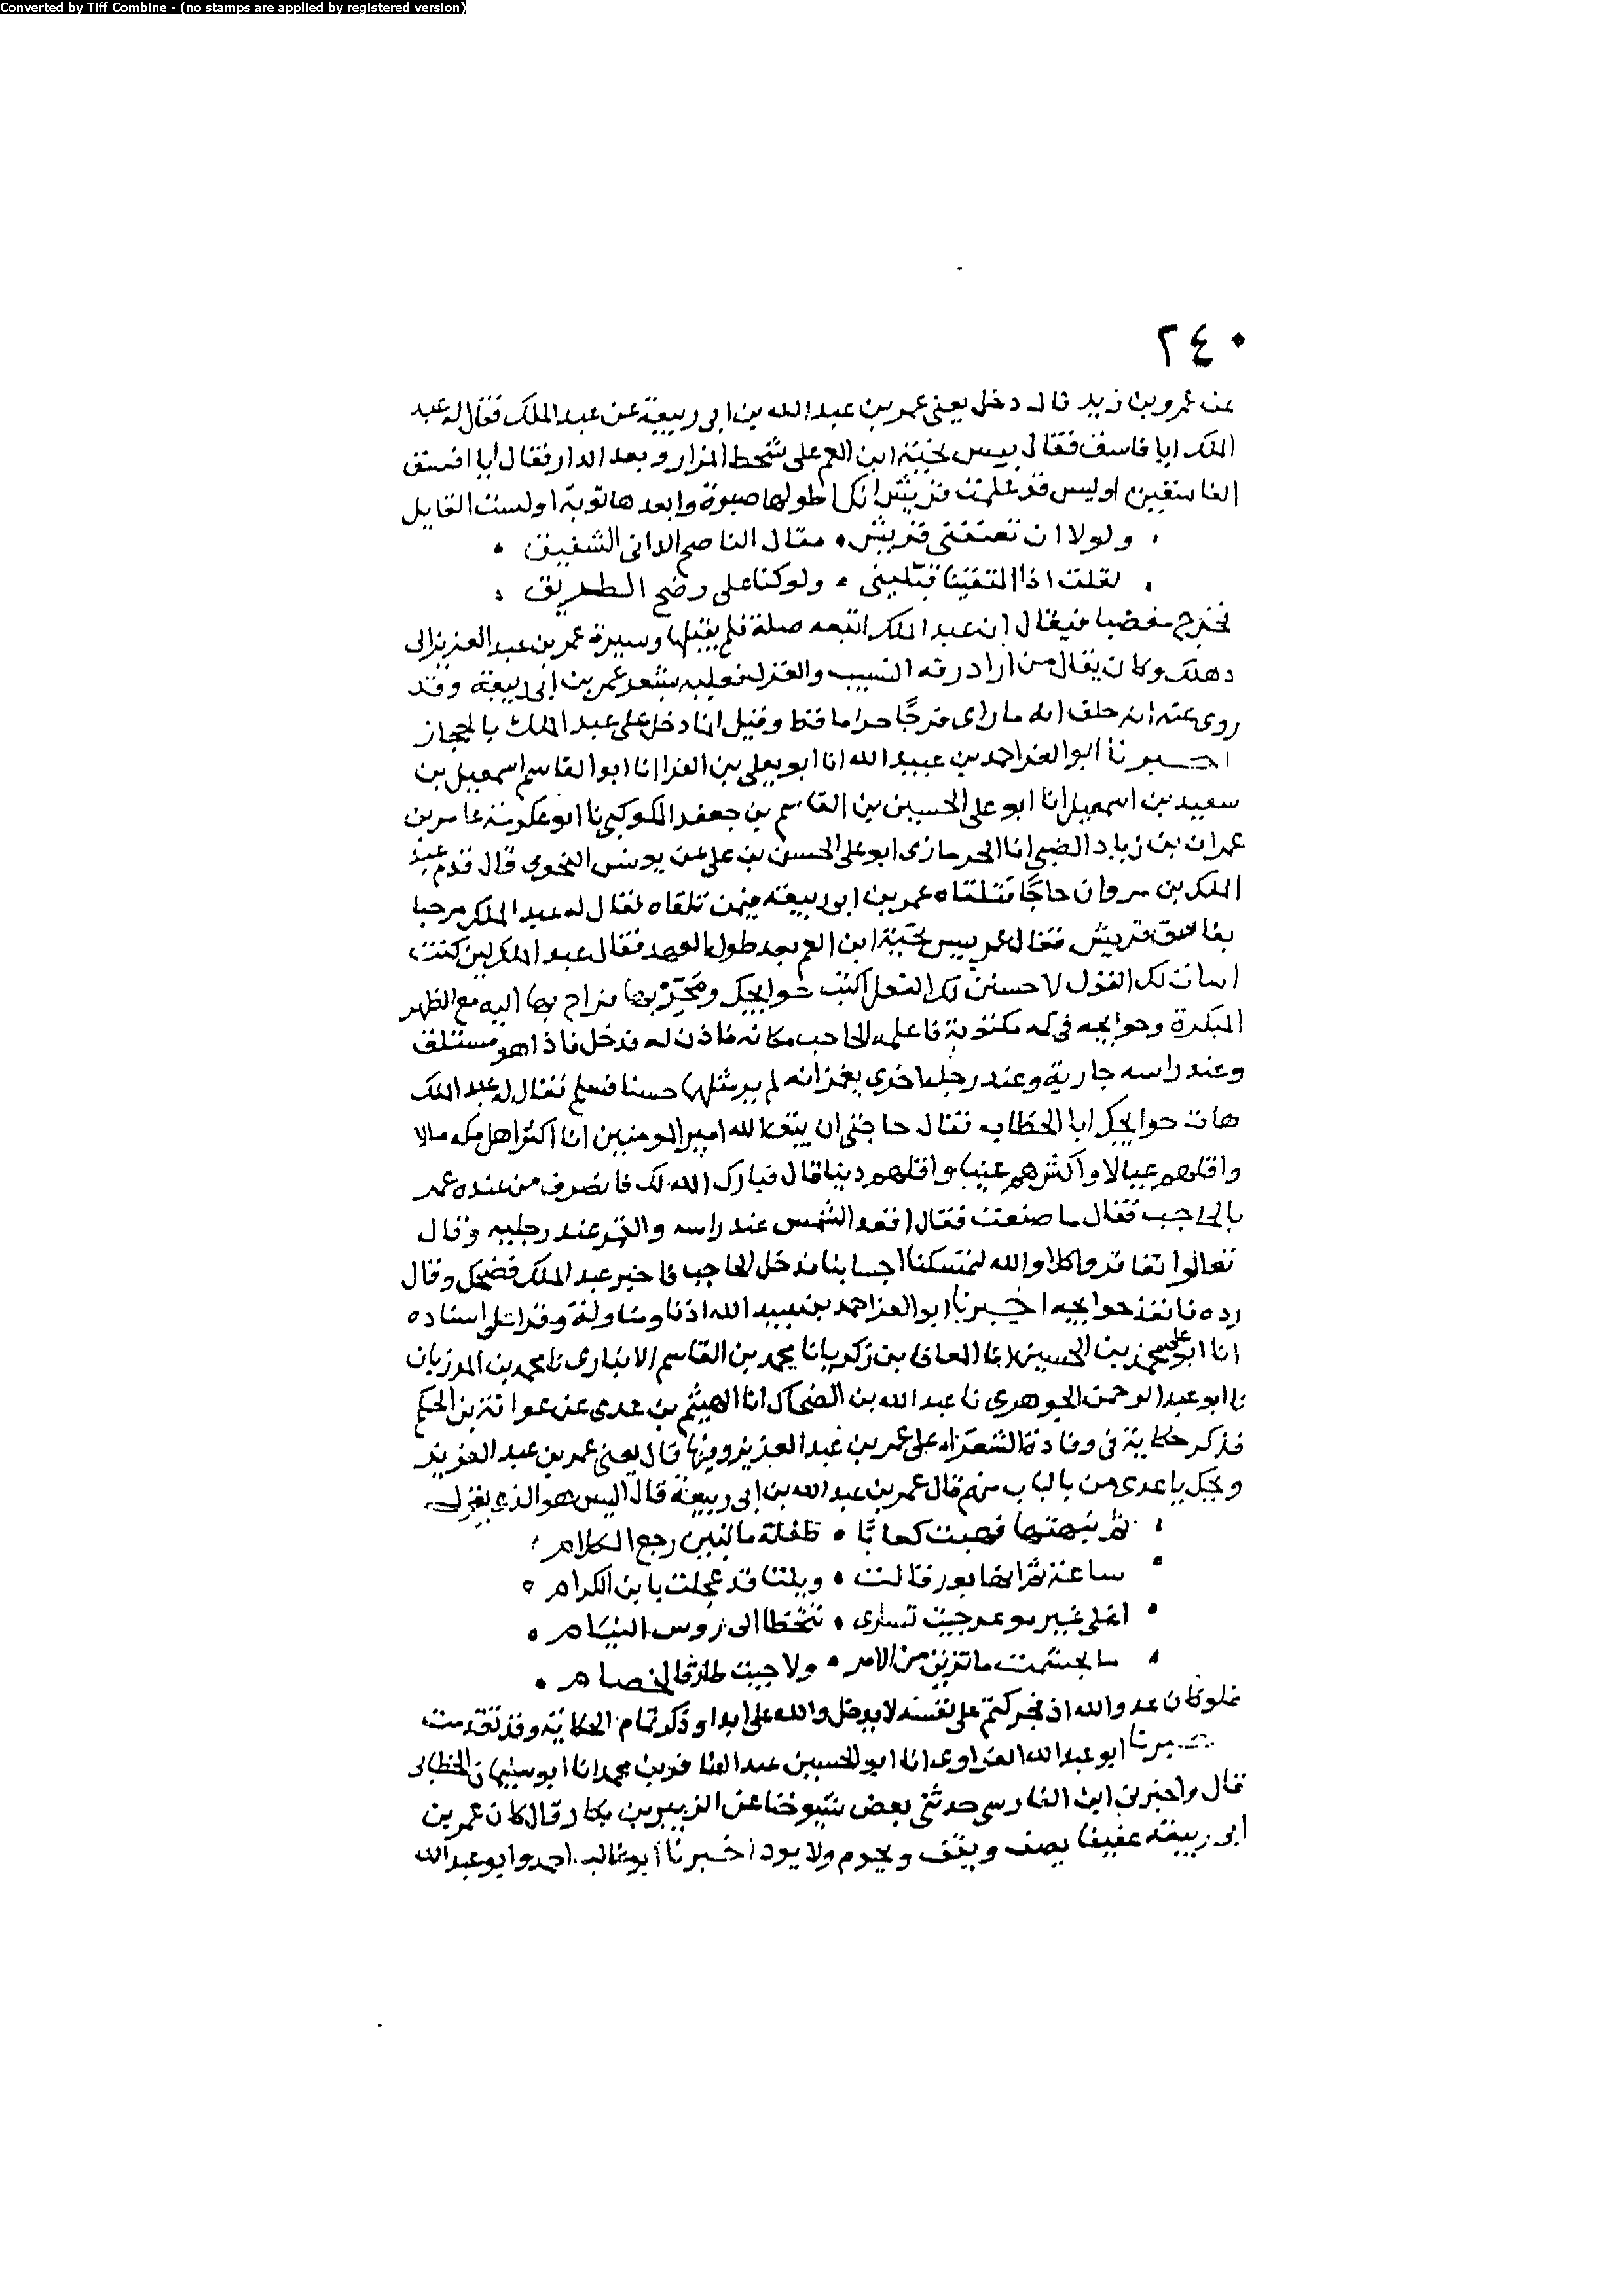 Converted by Tiff Combine - (no stamps are applied by registered version)
٢٤٠
عن عمرو بن زيد قال دخل يعني عمر بن عبد الله بن ابي ربيعة عن عبد الملك فقال له عبد
الملك ايا فاسق فقال بيس تحية ابن العم على شحط المزار وبعد الدار فقال أيا افسق
الفاسقين او ليس قد علمت قريش انك اطولها صبوة وابعدها توبة او لست القايل
ولولا ان تعنفني قريش • مقال الناصح الداني الشفيق •
لقلت اذا التقينا قبليني • ولو كنا على وضح الطريق
فخرج مغضبا فيقال ان عبد الملك اتبعه صلة فلم يقبلها وسيره عمر بن عبد العزيز الى
دهلك وكان يقال من اراد رقة النسيب والغزل فعليه بشعر عمر بن ابي ربيعة وقد
روى عنه انه حلف انه ما راى فرجًا حراما قط وقيل انما دخل على عبد الملك بالحجاز
اخبرنا ابو العز احمد بن عبيد الله انا ابو يعلى بن الفرا انا ابو القاسم اسمعيل بن
سعيد بن اسمعيل انا ابو علي الحسين بن القاسم بن جعفر الكوكبي نا ابو عكرمة عامر بن
عمران بن زياد الضبي انا الحرمازي ابو علي الحسن بن علي عن يونس النحوي قال قدم عبد
الملك بن مروان حاجًا فتلقاه عمر بن ابو ربيعة فيمن تلقاه فقال له عبد الملك مرحبا
بفاسق قريش فقال عمر بيس تحية ابن العم بعد طول العهد فقال عبد الملك لين كنت
اسات لك القول لاحسنن لك الفعل اكتب حوايجك بها فراح بها اليه مع الظهر
المبكرة وحوايجه في كمه مكتوبة فاعلم الحاجب مكانه فاذن له فدخل فاذا هو مستلق
وعند راسه جارية وعند رجله اخرى يغمزانه لم ير مثلها حسنا فسلم فقال له عبد الملك
هات حوايجك ابا الخطاب فقال حاجتي ان يبقا الله امير المومنين انا اكثر اهل مكه مالا
واقلهم عيالا واكثرهم عينا واقلهم دينا قال فبارك الله لك فانصرف من عنده عمر
بالحاجب فقال ما صنعت فقال اقعد الشمس عند راسه والقمر عند رجليه وقال
تعالوا كلا والله فدخل الحاجب فاخبر عبد الملك فضحك وقال
رده فانفذ حوايجه اخبرنا ابو العز احمد بن عبيد الله اذنا ومناولة وقرا على اسناده
انا ابو علي محمد بن الحسين انا المعافا بن زكريا نا محمد بن القاسم الانباري نا محمد بن المرزبان
نا ابو عبد الرحمن الجوهري نا عبد الله بن الضحاك انا الهيثم بن عدي عن عوانة بن الحكم
فذكر حكاية في وفادة الشعراء على عمر بن عبد العزيز وفيها قال يعني عمر بن عبد العزيز
ويحك يا عدي من بالباب منهم قال عمر بن عبد الله بن ابي ربيعة قال اليس هو الذي يقول
ثم نبهتها فهبت كعابًا • طفلة ما تبين رجع الكلام
ساعة ثم انها بعد قالت • ويلتا قد عجلت يا بن الكرام
اعلى غير موعد جيت تسري • تتخطا الى روس النيام •
ما تجشمت ما تزين من الامر • ولا جيت طارقا لخصام •
فلو كان عدو الله اذ فجر كتم على نفسه لا يدخل والله علي ابدا وذكر تمام الحكاية وقد تقدمت
اخبرنا ابو عبد الله الفراوي انا ابو الحسين عبد الغافر بن محمد انا ابو سليمان الخطابي
قال واخبرني ابن الفارسي حدثني بعض شيوخنا عن الزبير بن بكار قال كان عمر بن
ابي ربيعة عفيفا يصف ويقف ويحوم ولا يرد اخبرنا ابو غالب احمد وابو عبد الله